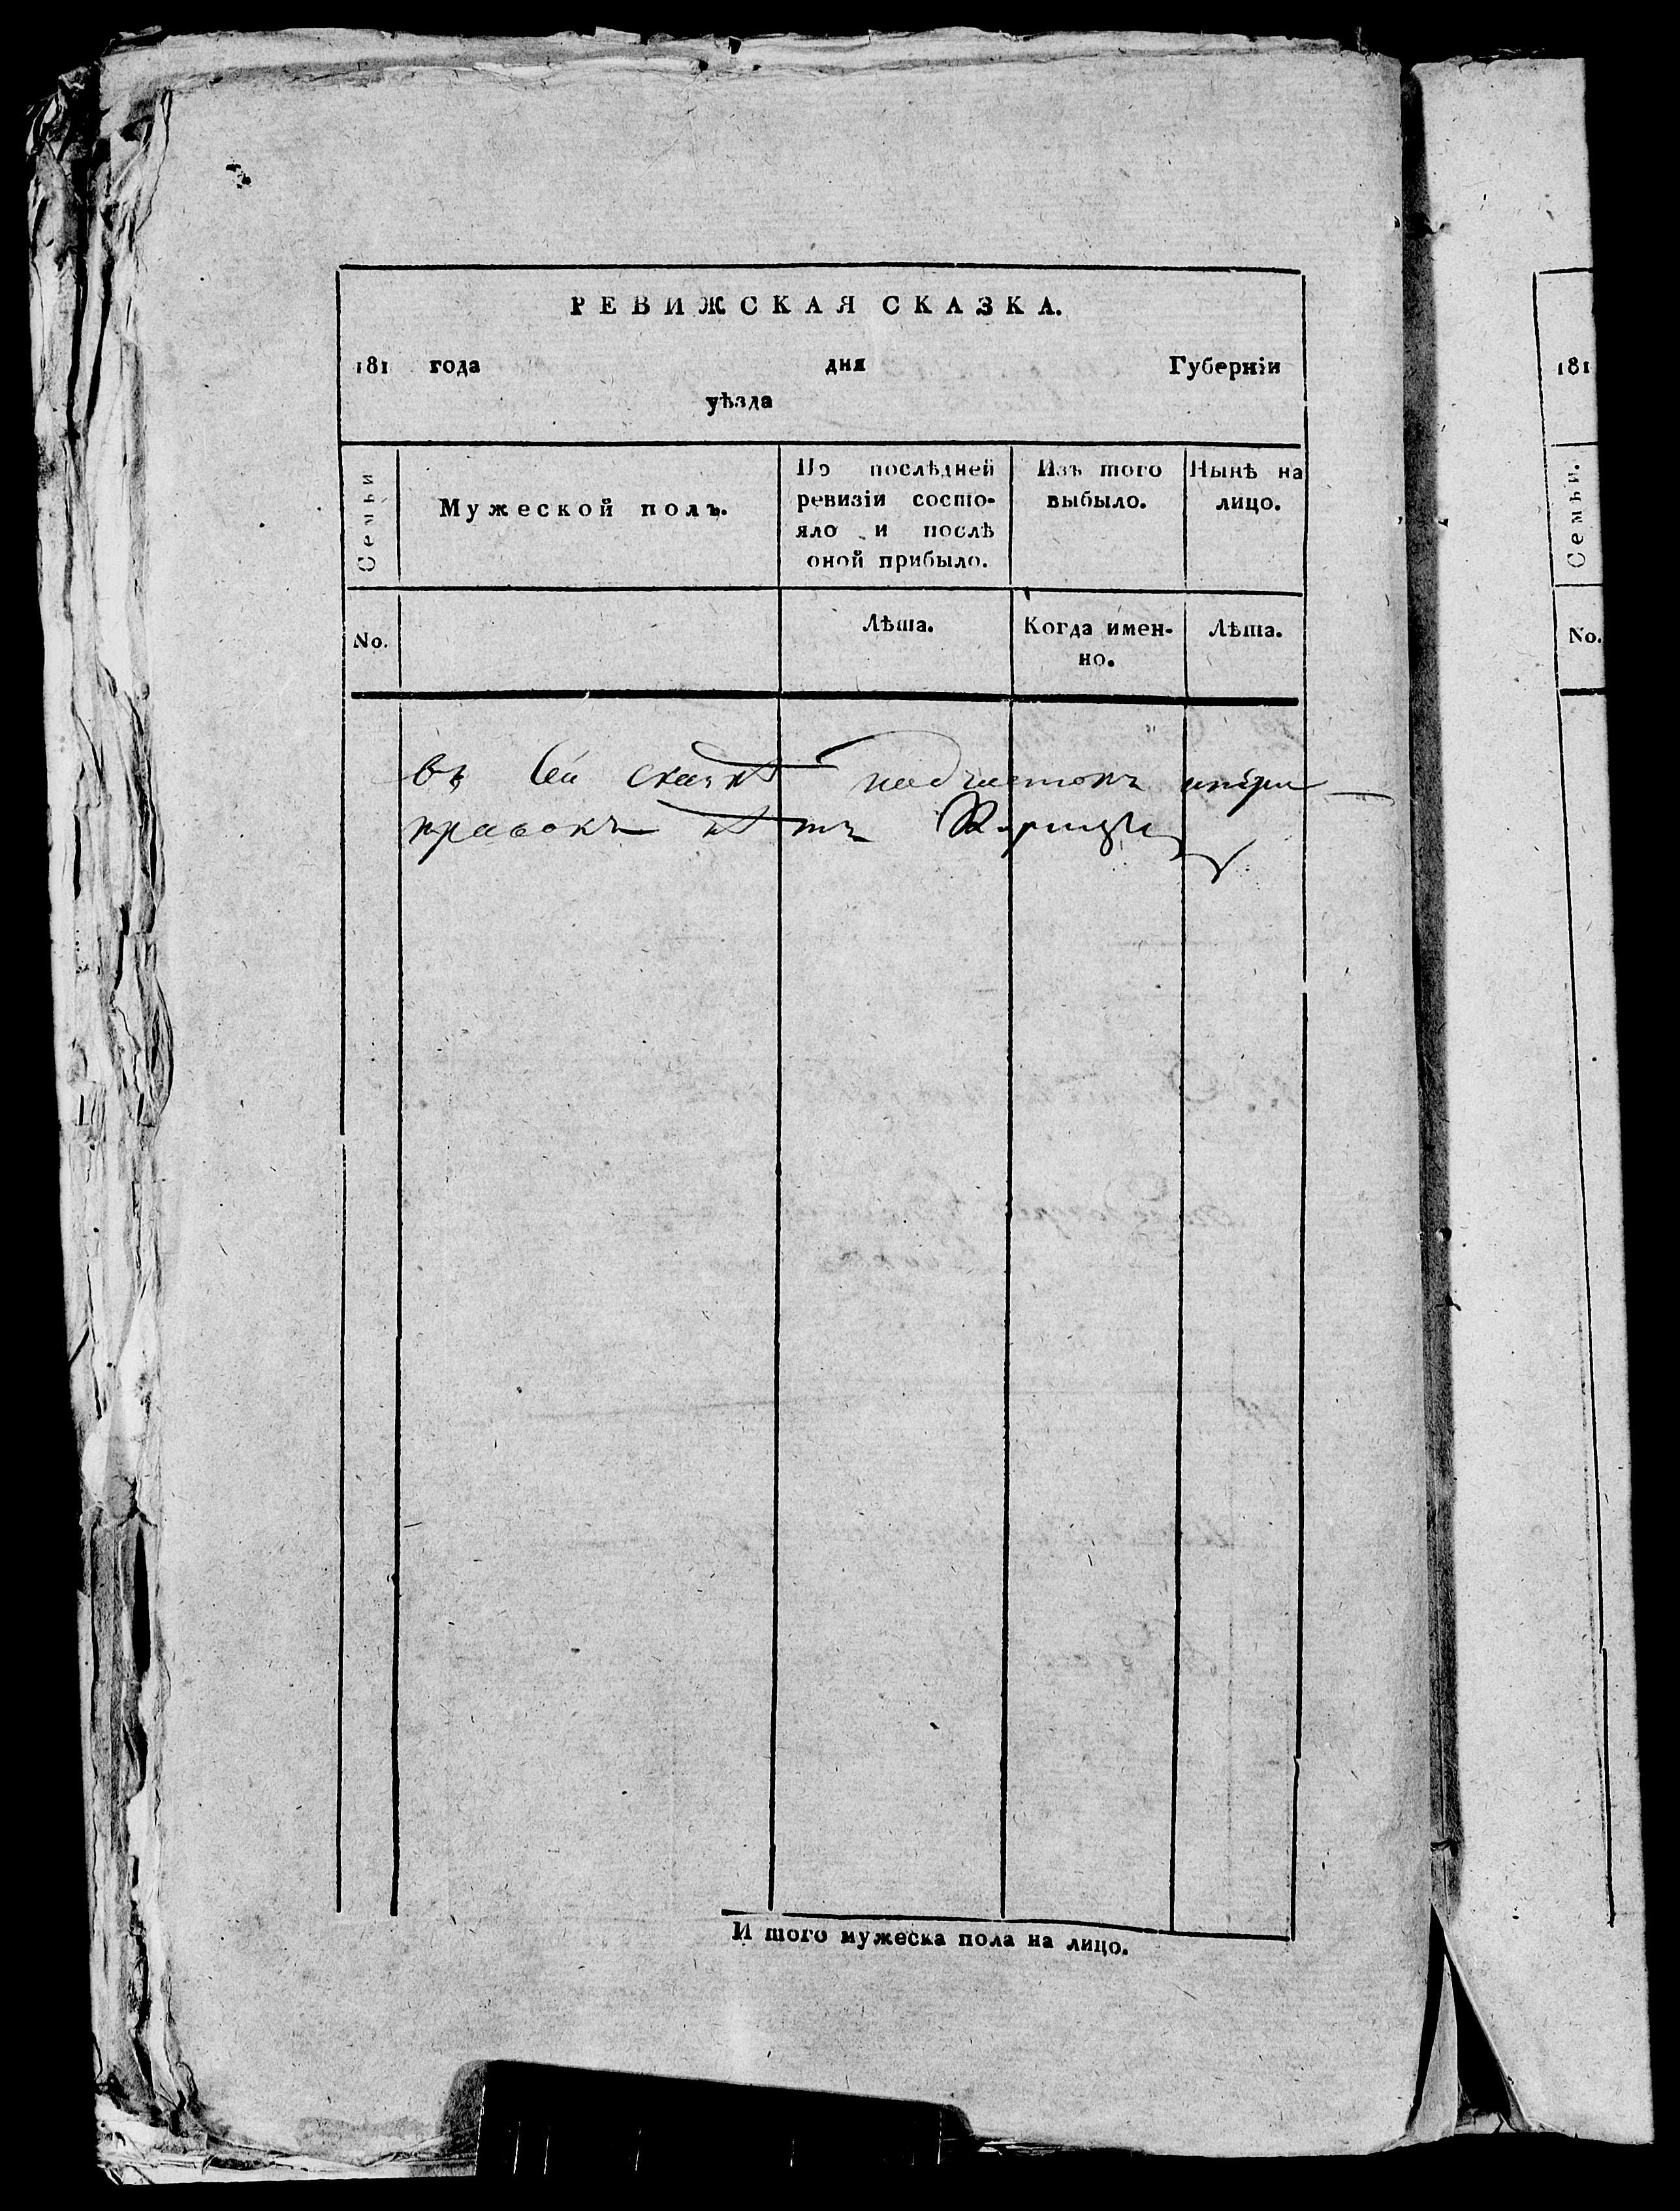 РЕВИЖСКАЯ СКАЗКА.
181 года дня Губерніи
уѣзда
Семьи
Мужеской полъ.
По послѣдней
ревизіи состо-
яло и послѣ
оной прибыло.
Изъ того
выбыло.
Нынѣ на
лицо.
No.
Лѣта.
Когда имен-
но.
Лѣта.
въ сей скаскѣ подчистокъ ипри
правокъ нѣтъ
И того мужеска пола на лицо.
181
Семьи.
No.